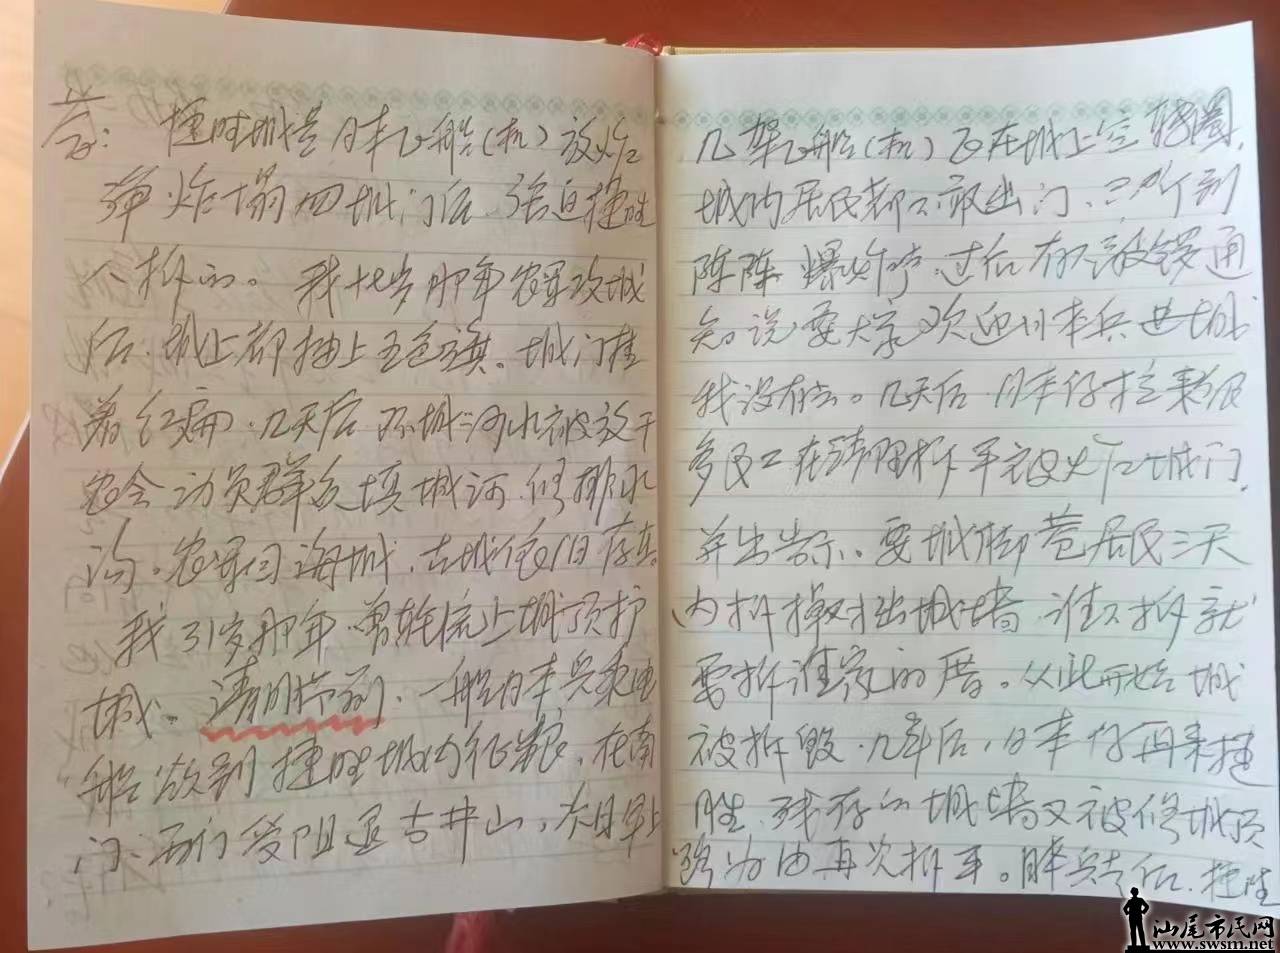 答：捷胜城是日本飞船(机)放炸
弹炸塌四城门后、强迫捷胜
人拆的。我十七岁那年农军攻城
后、城上都插上五色旗。城门挂
着红 、几天后环城河水被放干
农会动员群众填城河、修排水
沟。农军回海城、古城依旧存真。
我31岁那年、曾轮流上城顶护
城。清明节前、一船日本兵乘电
船欲到捷胜城内征粮、在南
门、西门受阻退古井山、次日早上
几架飞船(机)正在城上空转圈、
城内居民都不敢出门、只听到
陈阵爆炸声、过后有人敲锣通
知说要大家欢迎日本兵进城
我没有去。几天后、日本仔拉来很
多民工在清理拆平被炸 城门、
并出告示。要城脚巷居民三天
内拆掉对出城墙、谁不拆就
要拆谁家的厝。从此开始城
被拆毁、几年后、日本仔再来捷
胜、残存的城墙又被修城顶
路为由再次拆平。 兵走后、捷胜
汕尾市民网
www.swsm.net